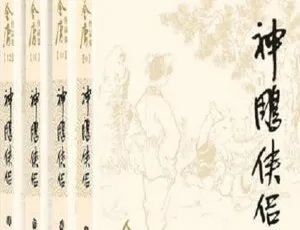 金庸
神雕侠侣
金庸
神雕侠侣
金庸
神雕侠侣
金庸
神雕侠侣
神雕侠侣